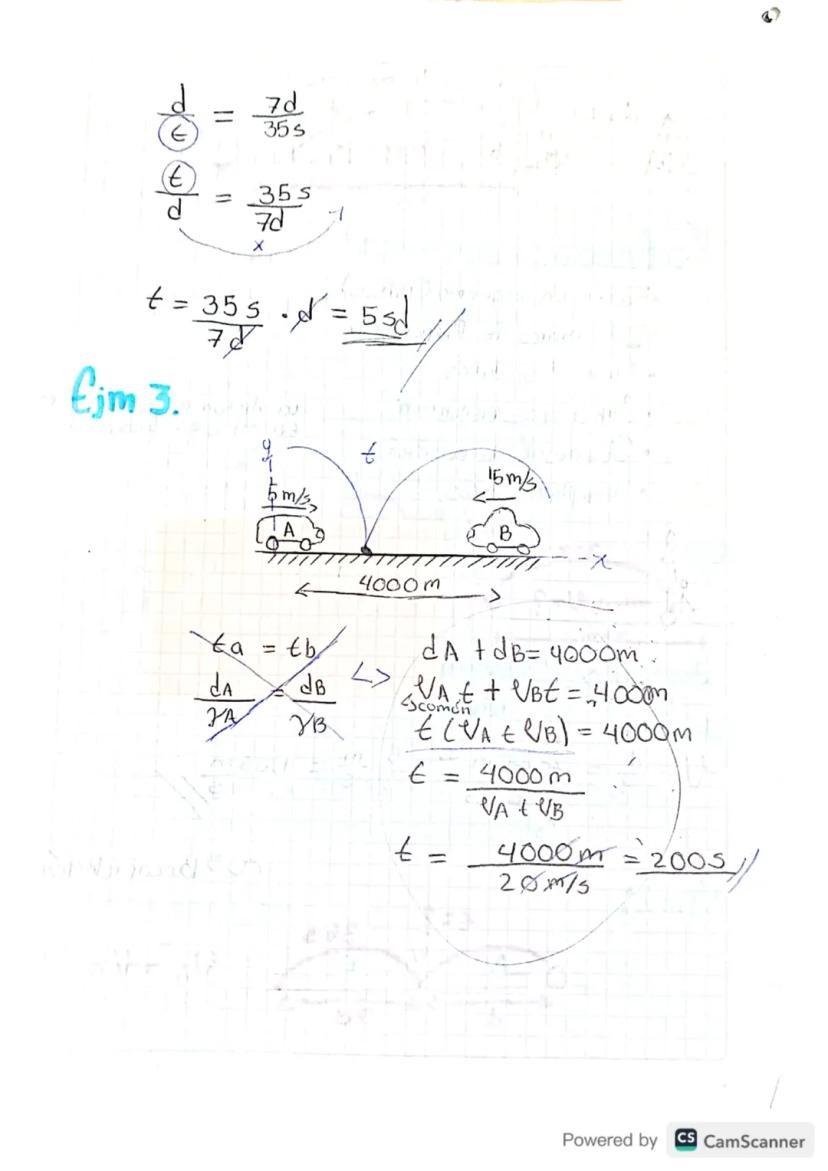 d/t = 7d/35s
t/d = 35s/7d
x
-1
t = 35s/7d . d = 5sd
Ejm 3.
y t
5 m/s 15 m/s
A B
x
4000 m
ta = tb <> dA + dB = 4000m
dA/VA = dB/VB
VA t + VB t = 4000m
comón
t (VA + VB) = 4000m
t = 4000m/VA + VB
t = 4000m/20 m/s = 200s
Powered by CS CamScanner